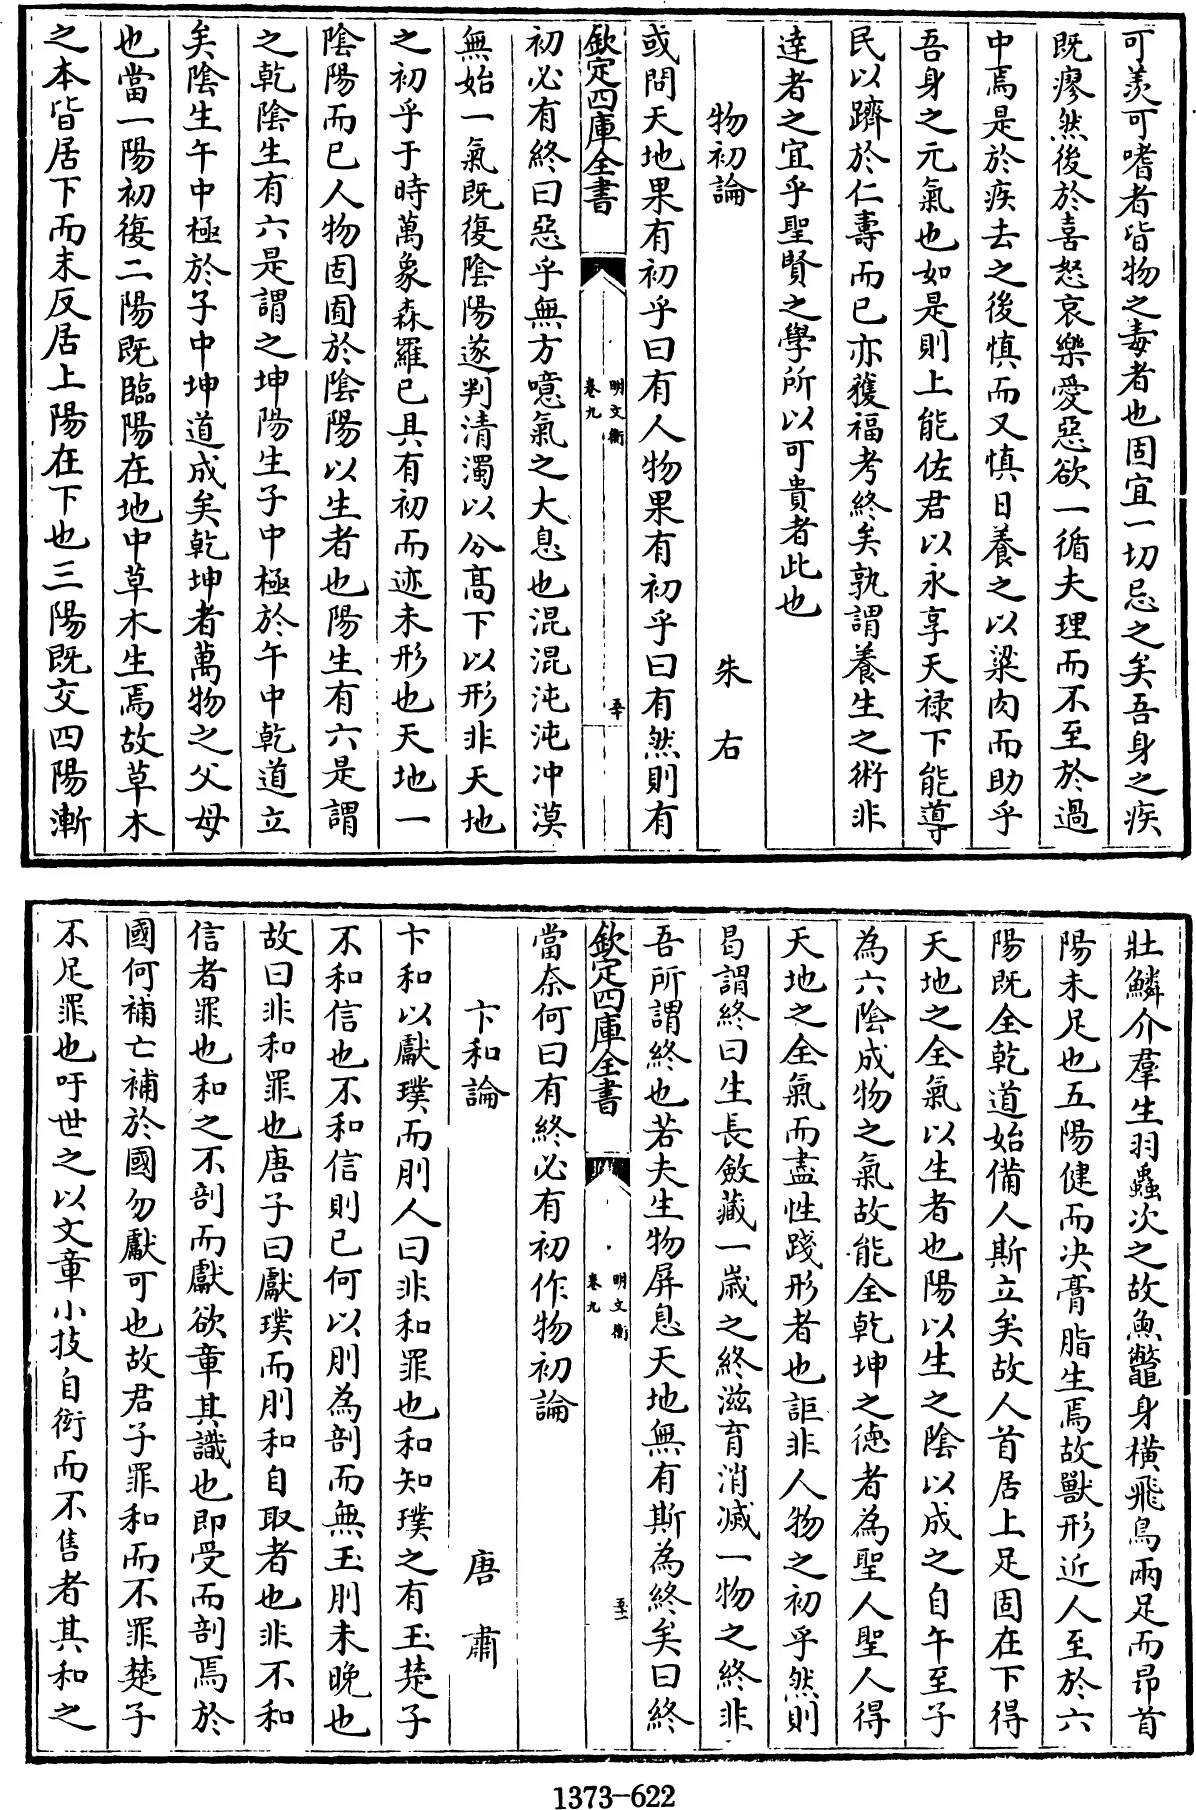 可羡可嗜者皆物之毒者也固宜一切忌之矣吾身之疾
既瘳然後於喜怒哀樂愛惡欲一循夫理而不至於過
中焉是於疾去之後慎而又慎日養之以粱肉而助乎
吾身之元氣也如是則上能佐君以永享天禄下能導
民以躋於仁壽而已亦獲福考終矣孰謂養生之術非
達者之宜乎聖賢之學所以可貴者此也
物初論 朱右
或問天地果有初乎曰有人物果有初乎曰有然則有
欽定四庫全書 明文衡 卷九 五十
初必有終曰惡乎無方噫氣之大息也混混沌沌冲漠
無始一氣既復陰陽遂判清濁以分髙下以形非天地
之初乎于時萬象森羅已具有初而迹未形也天地一
陰陽而已人物固囿於陰陽以生者也陽生有六是謂
之乾陰生有六是謂之坤陽生子中極於午中乾道立
矣陰生午中極於子中坤道成矣乾坤者萬物之父母
也當一陽初復二陽既臨陽在地中草木生焉故草木
之本皆居下而末反居上陽在下也三陽既交四陽漸
壯鱗介羣生羽蟲次之故魚鼈身横飛鳥兩足而昂首
陽未足也五陽健而决膏脂生焉故獸形近人至於六
陽既全乾道始備人斯立矣故人首居上足固在下得
天地之全氣以生者也陽以生之陰以成之自午至子
為六陰成物之氣故能全乾坤之徳者為聖人聖人得
天地之全氣而盡性踐形者也詎非人物之初乎然則
曷謂終曰生長斂藏一歳之終滋育消滅一物之終非
吾所謂終也若夫生物屏息天地無有斯為終矣曰終
欽定四庫全書 明文衡 卷九 五十一
當奈何曰有終必有初作物初論
卞和論 唐肅
卞和以獻璞而刖人曰非和罪也和知璞之有玉楚子
不和信也不和信則已何以刖為剖而無玉刖未晚也
故曰非和罪也唐子曰獻璞而刖和自取者也非不和
信者罪也和之不剖而獻欲章其識也即受而剖焉於
國何補亡補於國勿獻可也故君子罪和而不罪楚子
不足罪也吁世之以文章小技自衒而不售者其和之
1373-622